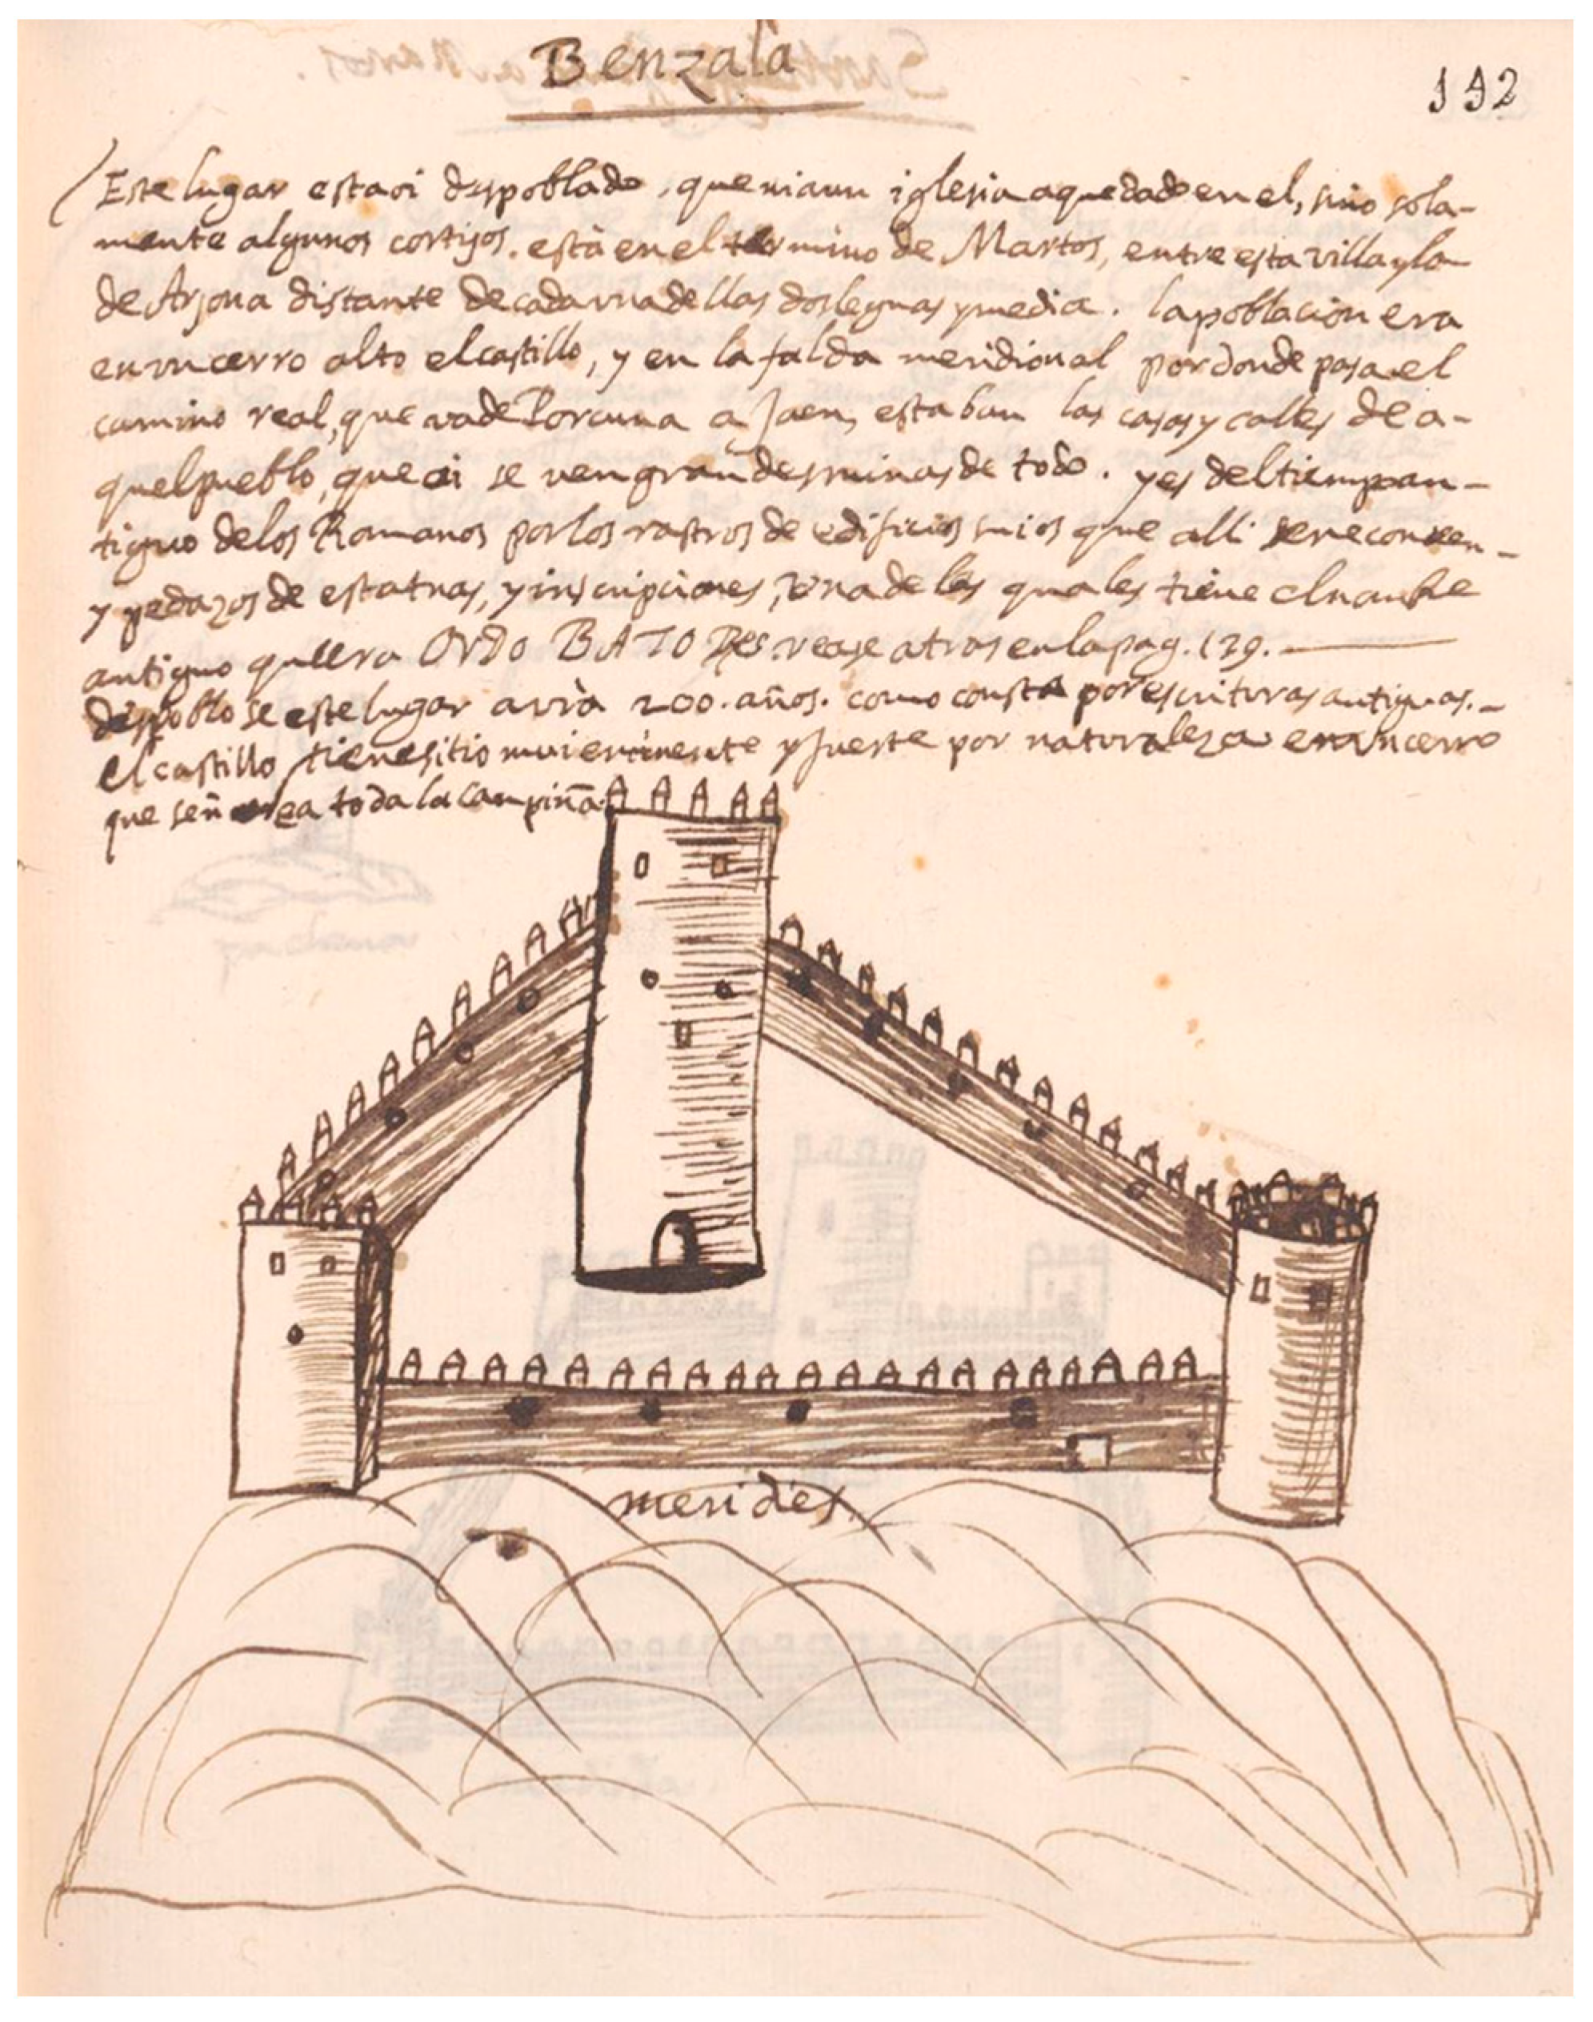 Benzala
192
Este lugar esta oi despoblado, que ni aun iglesia a quedado en el, sino sola-
mente algunos cortijos. està en el termino de Martos, entre esta villa y la
de Arjona distante de cada una dellas dos leguas y media. la poblacion era
en un cerro alto el castillo, y en la falda meridional por donde pasa el
camino real, que va de Porcuna a Jaen, estaban las casas y calles de a-
quel pueblo, que oi se ven grandes ruinas de todo. y es del tiempo an-
tiguo de los Romanos por los rastros de edificios suios que alli se reconocen
y pedazos de estatuas, y inscripciones, una de las quales tiene el nombre
antiguo que era ORDO BATO vease atras en la pag. 129.
despoblo se este lugar avrà 200. años. como consta por escrituras antiguas.
el castillo tiene sitio mui eminente y fuerte por naturaleza en un cerro
que señorea toda la campiña.
pachena
meridies